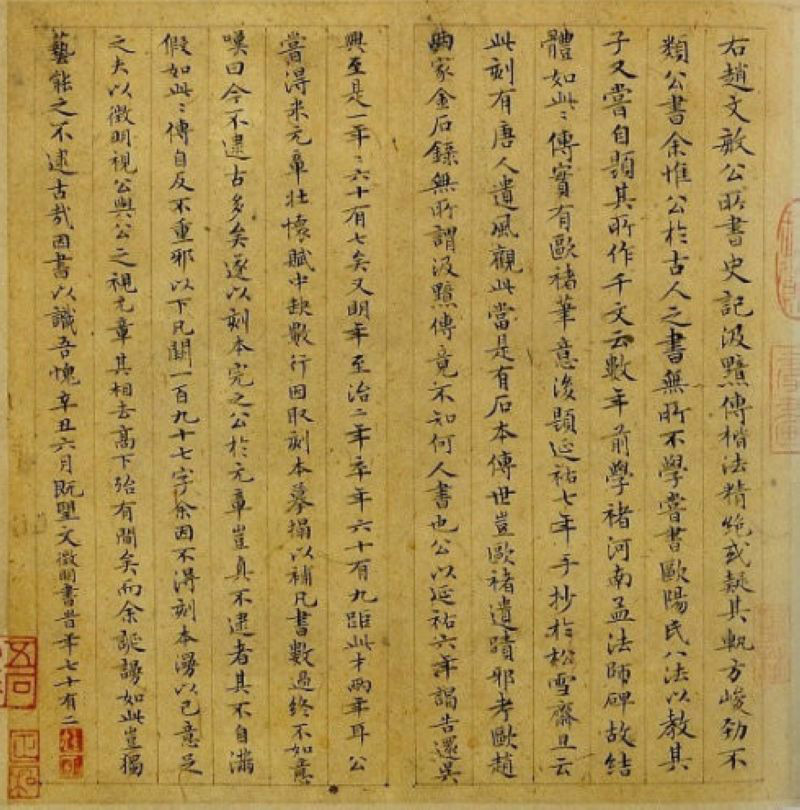 右趙文敏公所書史記汲黯傳楷法精絕或疑其軌方峻勁不
類公書余惟公於古人之書無所不學嘗書歐陽氏八法以教其
子又嘗自題其所作千文云數年前學褚河南孟法師碑故結
體如此〻傳實有歐褚筆意後題延祐七年手抄於松雪齋且云
此刻有唐人遺風觀此當是有石本傳世豈歐褚遺蹟邪考歐趙
兩家金石錄無所謂汲黯傳竟不知何人書也公以延祐六年謁告還吳
興至是一年〻六十有七矣又明年至治二年卒年六十有九距此才兩年耳公
嘗得米元章壯懷賦中缺數行因取刻本摹搨以補凡書數過終不如意
嘆曰今不逮古多矣遂以刻本完之公於元章豈真不逮者其不自滿
假如此〻傳自反不重邪以下凡闕一百九十七字余因不得刻本漫以己意足
之夫以徵明視公與公之視元章其相去高下殆有間矣而余誕謾如此豈獨
藝能之不逮古哉因書以識吾愧辛丑六月既望文徵明書昔年七十有二